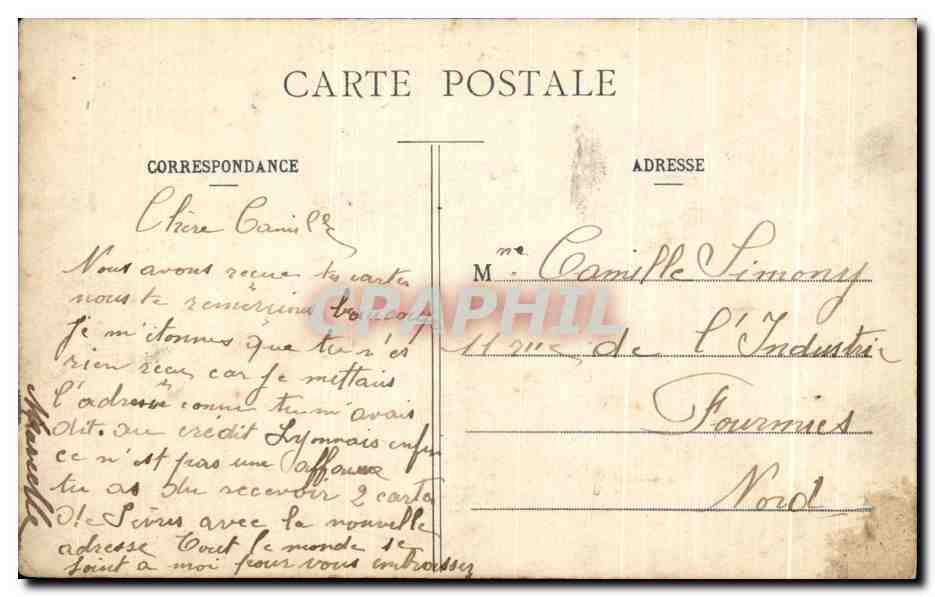 CARTE POSTALE
CORRESPONDANCE
Chère Camille
Nous avons reçue ta carte
nous te remercions boucoup
Je m'étonnes que tu n'es
rien reçu car je mettais
l'adresse comme tu m'avais
dit. au crédit Lyonnais enfin
ce n'est pas une affaire
tu as du recevoir 2 cartes
avec la nouvelle
adresse Tout le monde se
joint a moi pour vous embrasser
ADRESSE
Mme Camille Simony
11 rue de l'Industrie
Fourmies
Nord
CPAPHIL